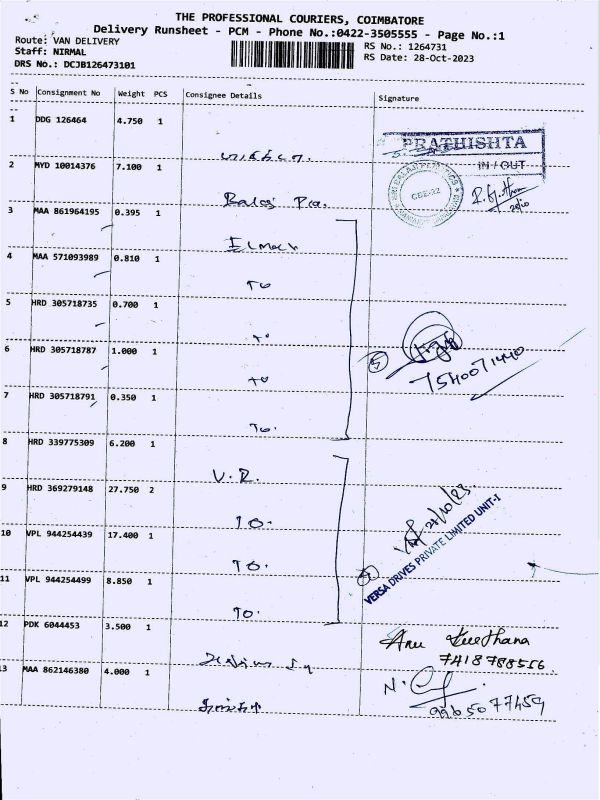 THE PROFESSIONAL COURIERS, COIMBATORE
Delivery Runsheet - PCM - Phone No.:0422-3505555 - Page No.:1
Route: VAN DELIVERY
RS No.: 1264731
Staff: NIRMAL
RS Date: 28-Oct-2023
DRS No.: DCJB126473101
S No Consignment No Weight PCS Consignee Details Signature
1 DDG 126464 4.750 1
PRATHISHTA
IN / OUT
2 MYD 10014376 7.100 1
CBE-22
3 MAA 861964195 0.395 1
4 MAA 571093989 0.810 1
To
5 HRD 305718735 0.700 1
6 HRD 305718787 1.000 1
7540071440
7 HRD 305718791 0.350 1
To.
8 HRD 339775309 6.200 1
V. R.
9 HRD 369279148 27.750 2
TO.
10 VPL 944254439 17.400 1
TO.
VERSA DRIVES PRIVATE LIMITED UNIT-I
11 VPL 944254499 8.850 1
TO.
12 PDK 6044453 3.500 1
Anu
13 MAA 862146380 4.000 1
N.